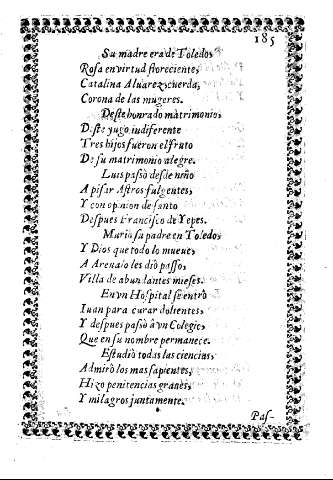 185
Su madre era de Toledo,
Rosa en virtud floreciente,
Catalina Aluarez, cuerda,
Corona de las mugeres.
Deste honrado matrimonio,
Deste yugo indiferente
Tres hijos fueron el fruto
De su matrimonio alegre.
Luis passò desde niño
A pisar Astros fulgentes,
Y con opinion de santo
Despues Francisco de Yepes.
Muriò su padre en Toledo,
Y Dios que todo lo mueue,
A Areualo les diò passo,
Villa de abundantes mieses.
En vn Hospital se entrò
Iuan para curar dolientes,
Y despues passò à vn Colegio,
Que en su nombre permanece.
Estudiò todas las ciencias,
Admirò los mas sapientes,
Hizo penitencias grandes,
Y milagros juntamente.
Pas-